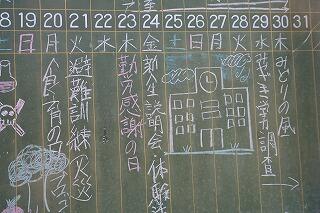 18 19 20 21 22 23 24 25 26 27 28 29 30 31
土 日 月 火 水 木 金 土 日 月 火 水 木
食育の
避難訓練(火災
勤労感謝の日
説明会・体験
調査
みどりの風